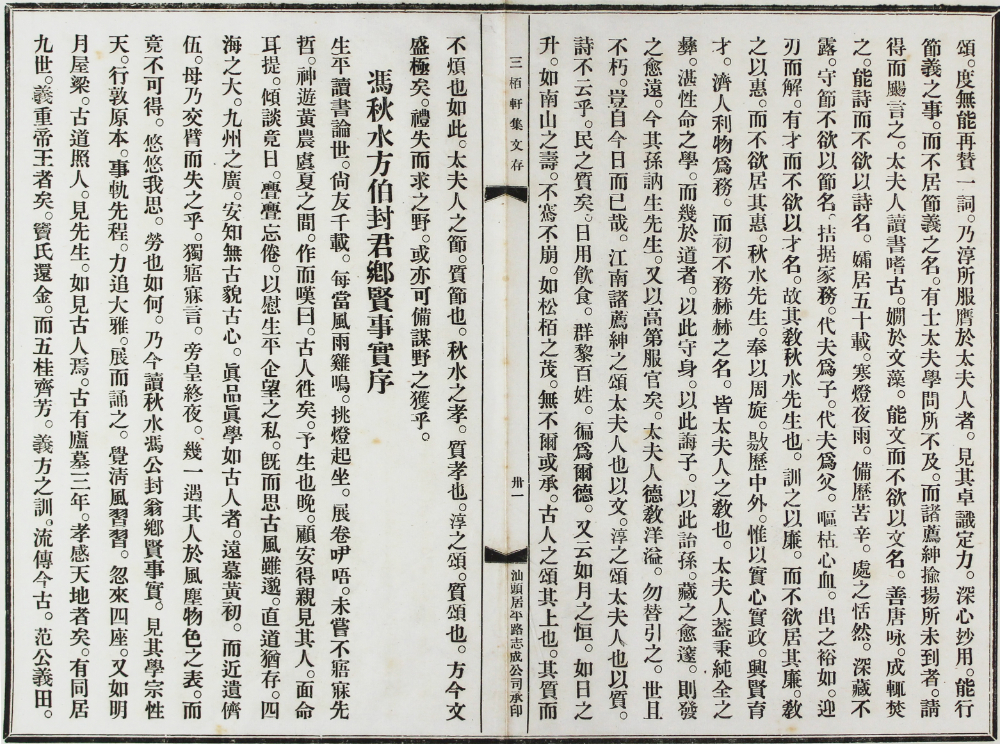 頌。度無能再贊一詞。乃淳所服膺於太夫人者。見其卓識定力。深心妙用。能行
節義之事。而不居節義之名。有士太夫學問所不及。而諸薦紳揄揚所未到者。請
得而颺言之。太夫人讀書嗜古。嫺於文藻。能文而不欲以文名。善唐咏。成輒焚
之。能詩而不欲以詩名。孀居五十載。寒燈夜雨。備歷苦辛。處之恬然。深藏不
露。守節不欲以節名。拮据家務。代夫爲子。代夫爲父。嘔枯心血。出之裕如。迎
刃而解。有才而不欲以才名。故其敎秋水先生也。訓之以廉。而不欲居其廉。敎
之以惠。而不欲居其惠。秋水先生。奉以周旋。敭歷中外。惟以實心實政。興賢育
才。濟人利物爲務。而初不務赫赫之名。皆太夫人之敎也。太夫人蓋秉純全之
彝。湛性命之學。而幾於道者。以此守身。以此誨子。以此詒孫。藏之愈邃。則發
之愈遠。今其孫訥生先生。又以高第服官矣。太夫人德敎洋溢。勿替引之。世且
不朽。豈自今日而已哉。江南諸薦紳之頌太夫人也以文。淳之頌太夫人也以質。
詩不云乎。民之質矣。日用飲食。群黎百姓。徧爲爾德。又云如月之恒。如日之
升。如南山之壽。不騫不崩。如松栢之茂。無不爾或承。古人之頌其上也。其質而
三栢軒集文存
卅一
汕頭居平路志成公司承印
不煩也如此。太夫人之節。質節也。秋水之孝。質孝也。淳之頌。質頌也。方今文
盛極矣。禮失而求之野。或亦可備謀野之獲乎。
馮秋水方伯封君鄉賢事實序
生平讀書論世。尙友千載。每當風雨雞鳴。挑燈起坐。展卷咿唔。未嘗不寤寐先
哲。神遊黃農虞夏之間。作而嘆曰。古人徃矣。予生也晚。顧安得親見其人。面命
耳提。傾談竟日。亹亹忘倦。以慰生平企望之私。旣而思古風雖邈。直道猶存。四
海之大。九州之廣。安知無古貌古心。眞品眞學如古人者。遠慕黃初。而近遺儕
伍。母乃交臂而失之乎。獨寤寐言。旁皇終夜。幾一遇其人於風塵物色之表。而
竟不可得。悠悠我思。勞也如何。乃今讀秋水馮公封翁鄉賢事實。見其學宗性
天。行敦原本。事軌先程。力追大雅。展而誦之。覺淸風習習。忽來四座。又如明
月屋梁。古道照人。見先生。如見古人焉。古有廬墓三年。孝感天地者矣。有同居
九世。義重帝王者矣。竇氏還金。而五桂齊芳。義方之訓。流傳今古。范公義田。